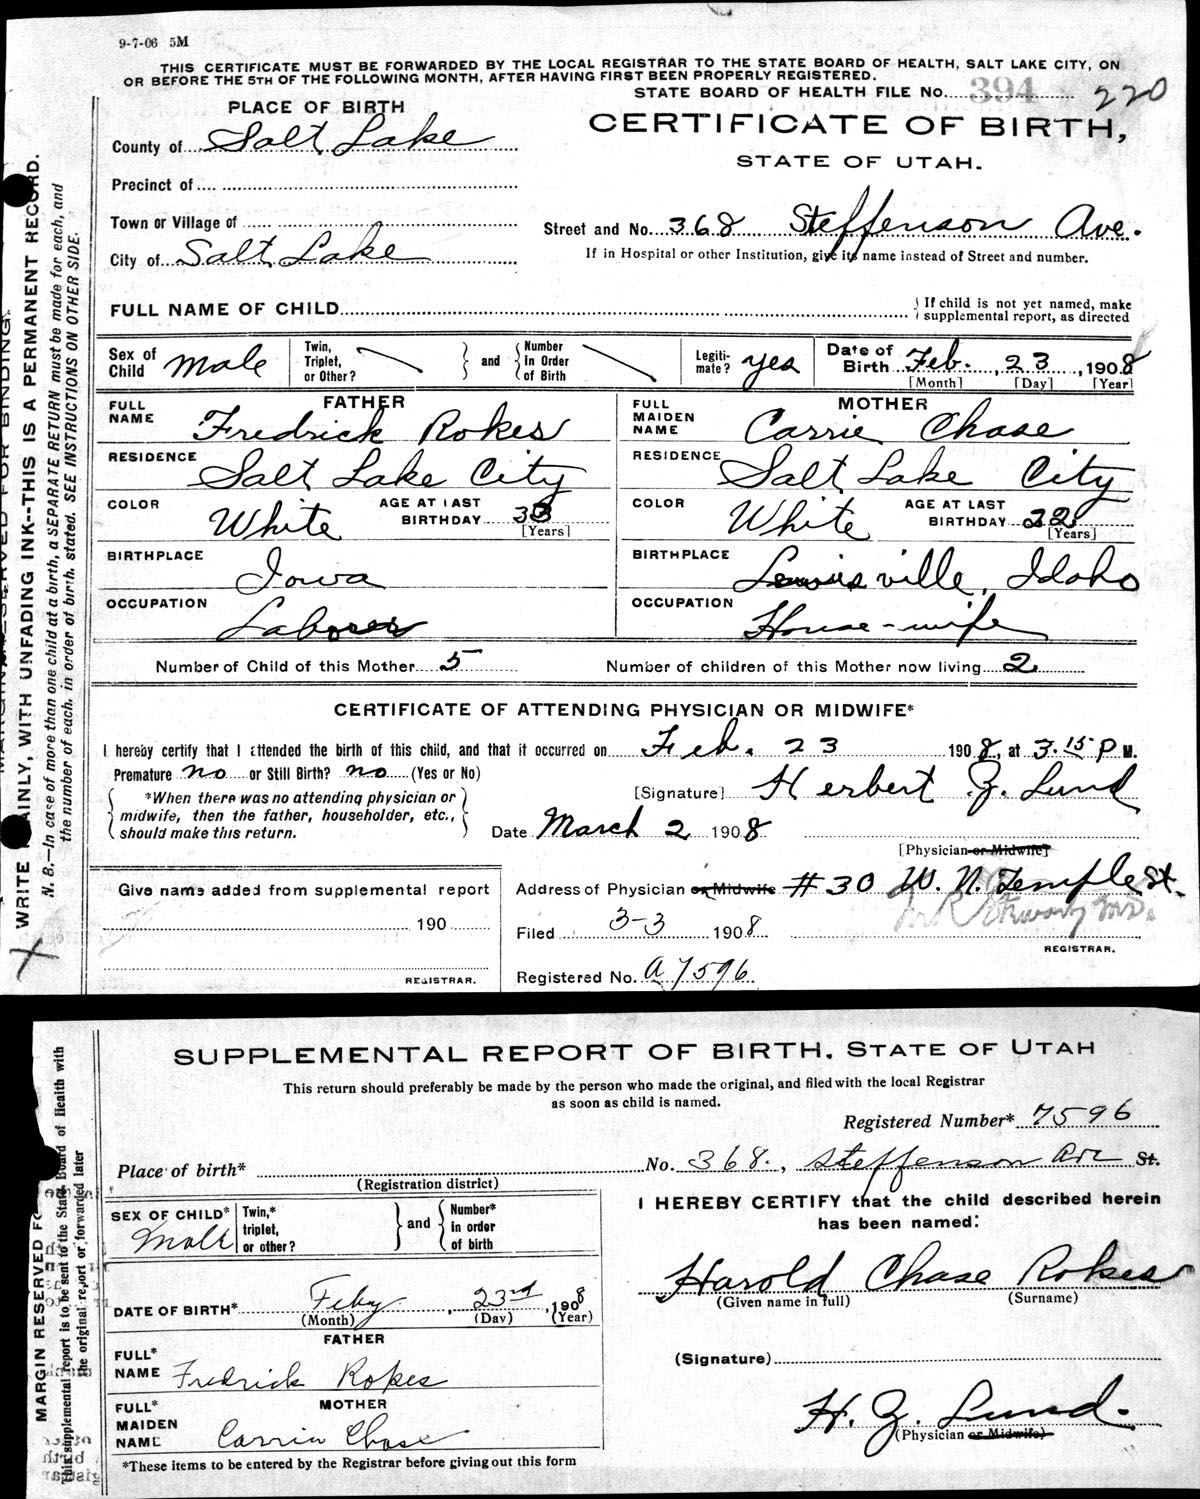 9-7-06 5M
THIS CERTIFICATE MUST BE FORWARDED BY THE LOCAL REGISTRAR TO THE STATE BOARD OF HEALTH, SALT LAKE CITY, ON
OR BEFORE THE 5TH OF THE FOLLOWING MONTH, AFTER HAVING FIRST BEEN PROPERLY REGISTERED.
STATE BOARD OF HEALTH FILE No. 394 220
PLACE OF BIRTH
CERTIFICATE OF BIRTH,
STATE OF UTAH.
County of Salt Lake
Precinct of
Town or Village of
Street and No. 368 Steffenson Ave.
City of Salt Lake
If in Hospital or other Institution, give its name instead of Street and number.
FULL NAME OF CHILD
If child is not yet named, make
supplemental report, as directed
Sex of Child Male Twin, Triplet, or Other? and Number in Order of Birth Legiti-mate? yes Date of Birth Feb. 23, 1908
[Month] [Day] [Year]
FATHER MOTHER
FULL NAME Fredrick Rokes FULL MAIDEN NAME Carrie Chase
RESIDENCE Salt Lake City RESIDENCE Salt Lake City
COLOR White AGE AT LAST BIRTHDAY 33 [Years] COLOR White AGE AT LAST BIRTHDAY 22 [Years]
BIRTHPLACE Iowa BIRTHPLACE Lewisville, Idaho
OCCUPATION Laborer OCCUPATION House-wife
Number of Child of this Mother 5 Number of children of this Mother now living 2
CERTIFICATE OF ATTENDING PHYSICIAN OR MIDWIFE*
I hereby certify that I attended the birth of this child, and that it occurred on Feb. 23 1908, at 3.15 P M.
Premature no or Still Birth? no (Yes or No)
[Signature] Herbert Z. Lund
*When there was no attending physician or
midwife, then the father, householder, etc.,
should make this return.
Date March 2 1908
[Physician or Midwife]
Give name added from supplemental report
190
REGISTRAR.
Address of Physician or Midwife #30 W. N. Temple St.
Filed 3-3 1908
REGISTRAR.
Registered No. A 7596
WRITE PLAINLY, WITH UNFADING INK--THIS IS A PERMANENT RECORD.
N. B.—In case of more than one child at a birth, a SEPARATE RETURN must be made for each, and
the number of each, in order of birth, stated. SEE INSTRUCTIONS ON OTHER SIDE.
SUPPLEMENTAL REPORT OF BIRTH, STATE OF UTAH
This return should preferably be made by the person who made the original, and filed with the local Registrar
as soon as child is named.
Registered Number* 7596
Place of birth* No. 368., Steffenson Ave St.
(Registration district)
SEX OF CHILD* Male Twin,* triplet, or other? and Number* in order of birth
I HEREBY CERTIFY that the child described herein
has been named:
Harold Chase Rokes
(Given name in full) (Surname)
DATE OF BIRTH* Feby 23rd, 1908
(Month) (Day) (Year)
FATHER
FULL* NAME Fredrick Rokes
(Signature)
MOTHER
FULL* MAIDEN NAME Carrie Chase
H. Z. Lund.
(Physician or Midwife)
*These items to be entered by the Registrar before giving out this form
This supplemental report is to be sent to the State Board of Health with
the original report or forwarded later